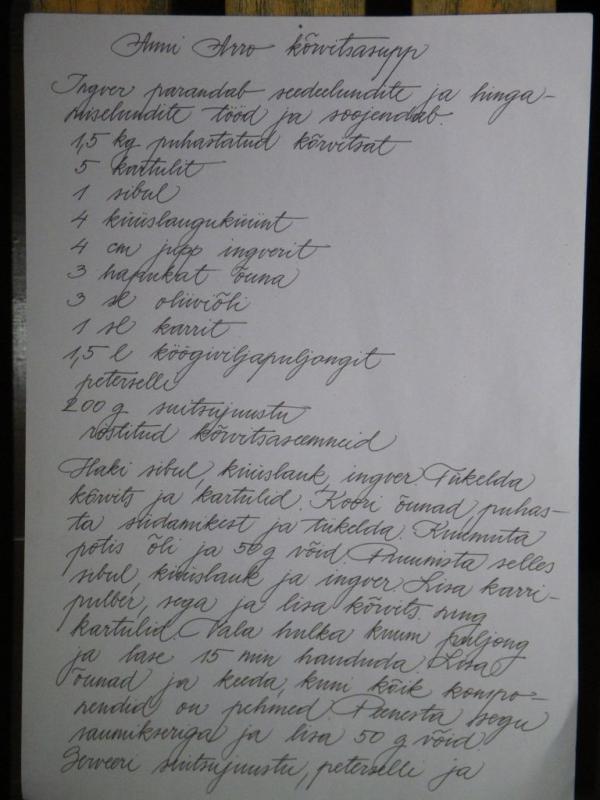 Anni Arro kõrvitsasupp
Ingver parandab seedeelundite ja hinga-
miselundite tööd ja soojendab.
1,5 kg puhastatud kõrvitsat
5 kartulit
1 sibul
4 küüslauguküünt
4 cm jupp ingverit
3 hapukat õuna
3 sl oliiviõli
1 sl karrit
1,5 l köögiviljapuljongit
peterselli
200 g suitsujuustu
röstitud kõrvitsaseemneid
Haki sibul, küüslauk, ingver. Tükelda
kõrvits ja kartulid. Koori õunad, puhas-
ta südamikest ja tükelda. Kuumuta
potis õli ja 50 g võid. Pruunista selles
sibul, küüslauk ja ingver. Lisa karri-
pulber, sega ja lisa kõrvits ning
kartulid. Vala hulka kuum puljong
ja lase 15 min haududa. Lisa
õunad ja keeda, kuni kõik kompo-
nendid on pehmed. Peenesta kogu
saumikseriga ja lisa 50 g võid.
Serveeri suitsujuustu, peterselli ja